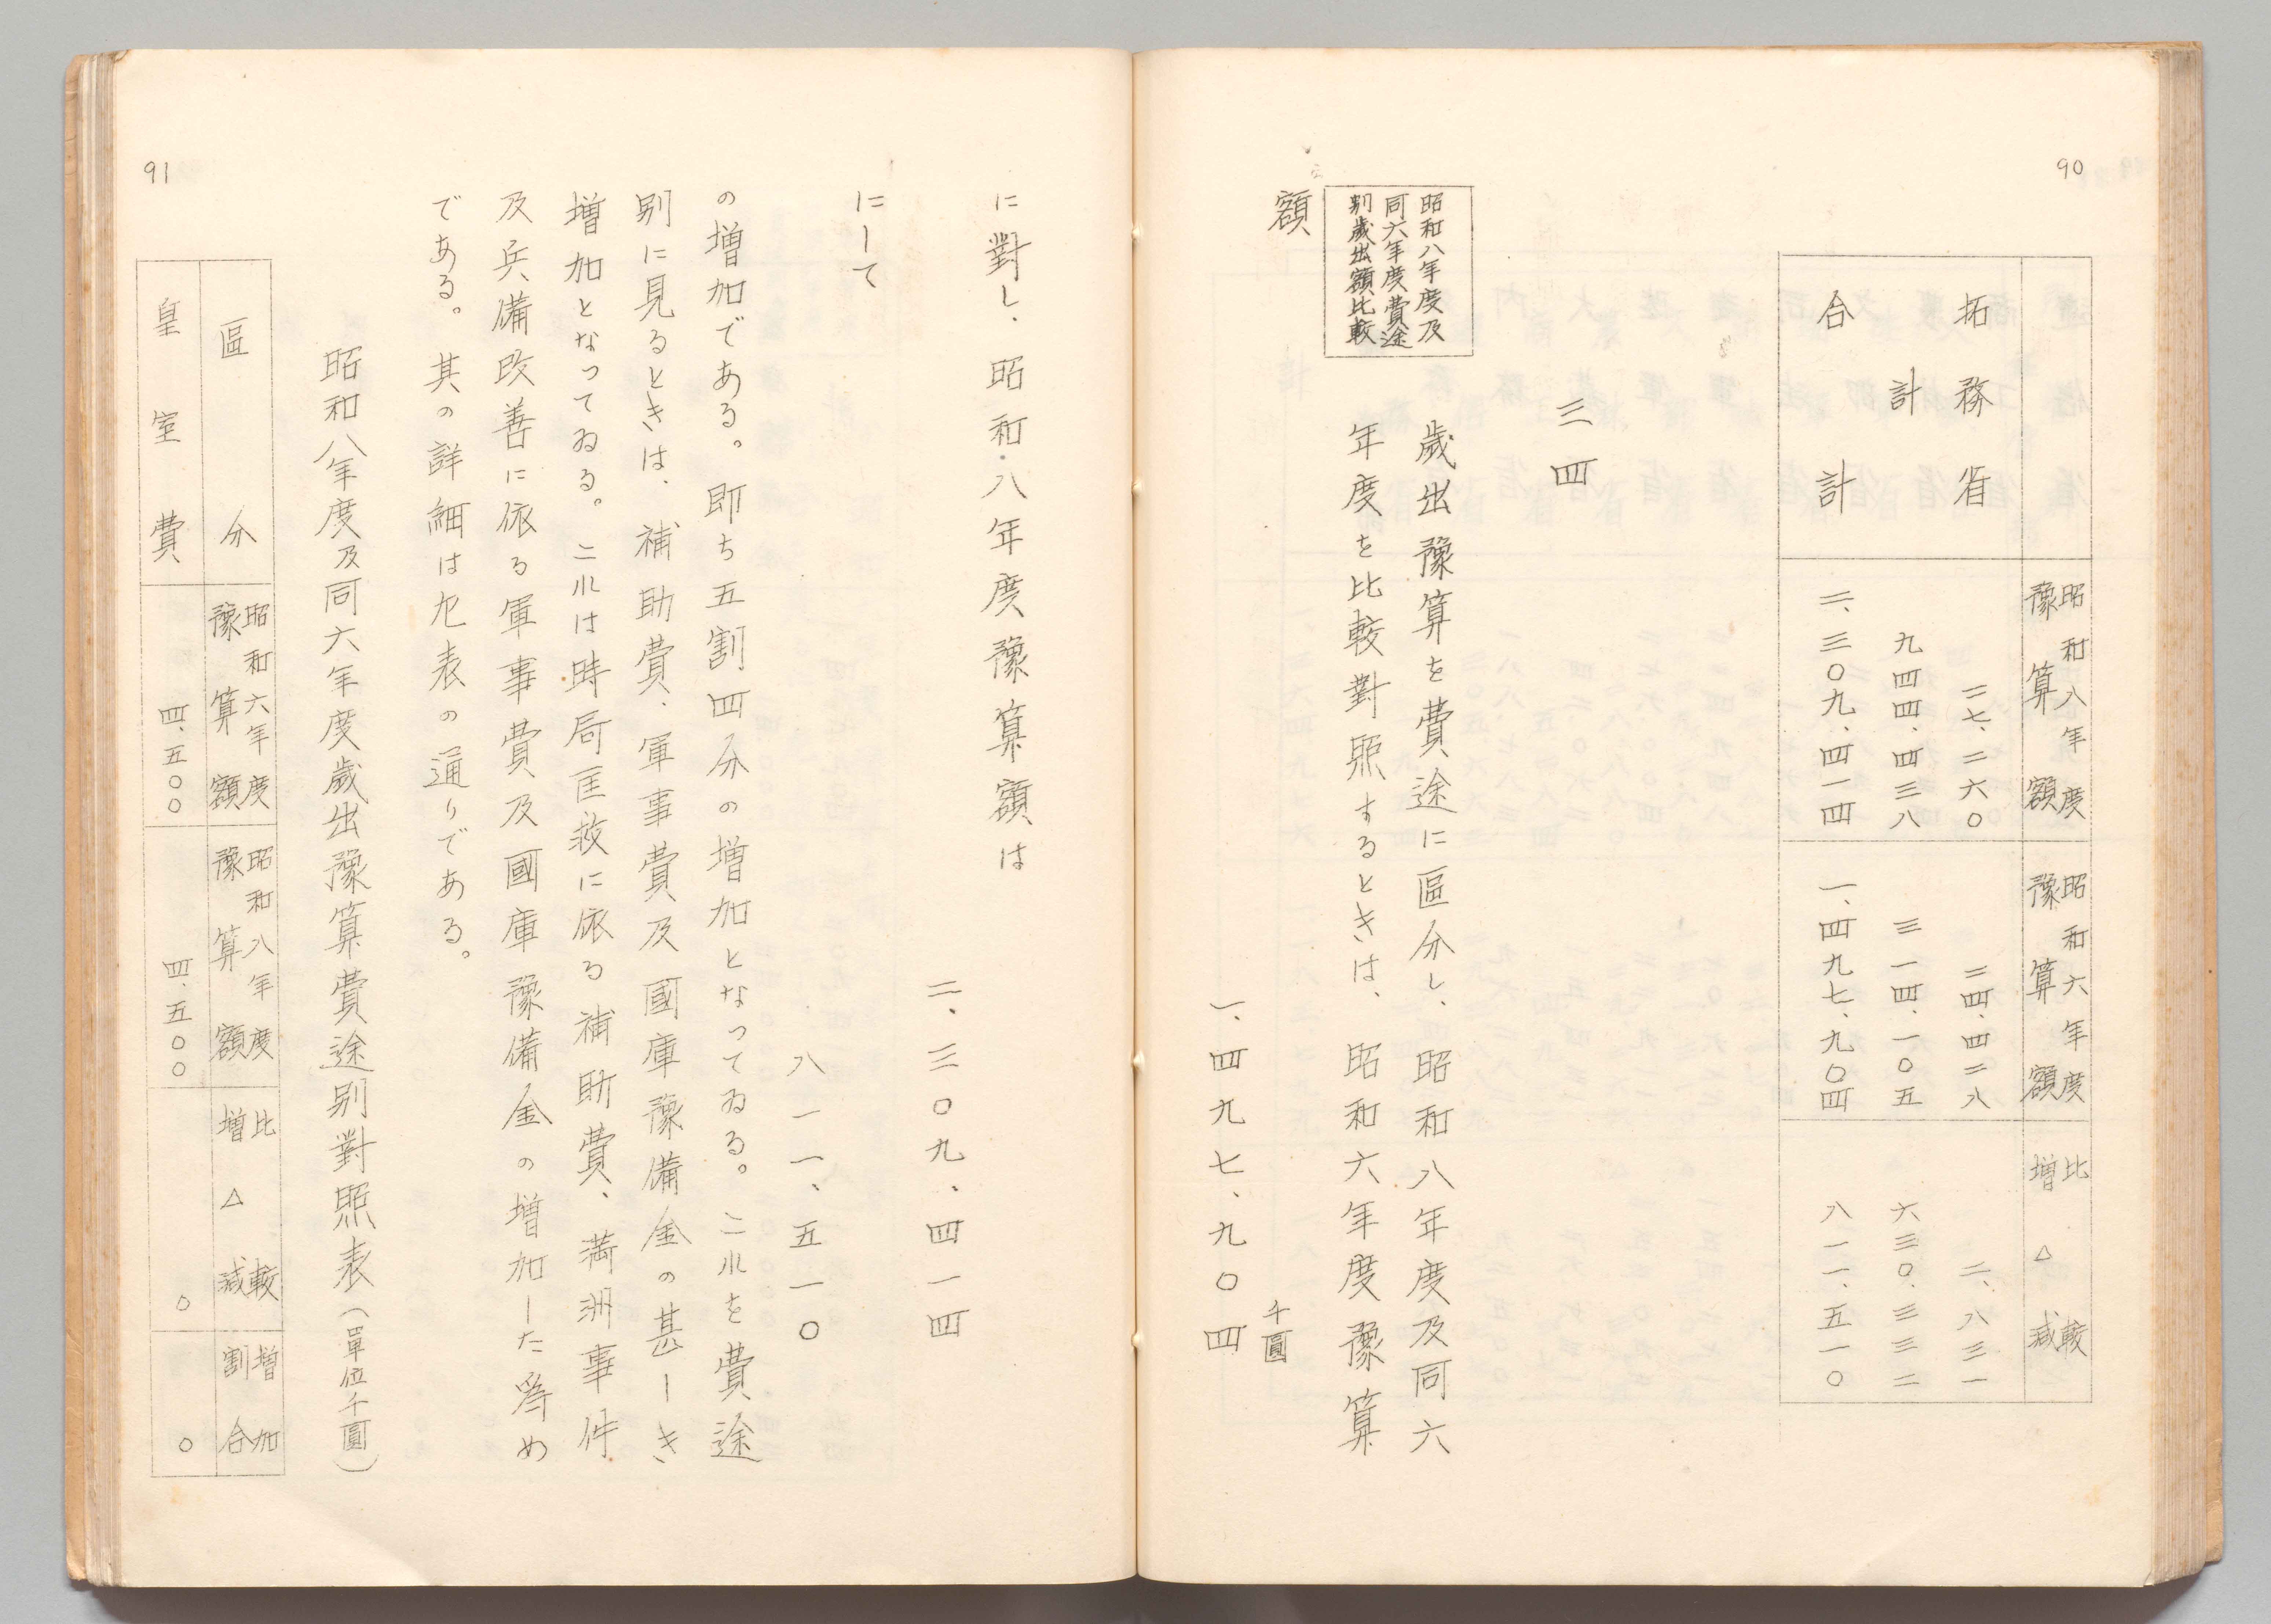 90
昭和八年度豫算額 昭和六年度豫算額 比較増△減
拓務省 二七、二六〇 二四、四二八 二、八三一
計 九四四、四三八 三一四、一〇五 六三〇、三三二
合計 二、三〇九、四一四 一、四九七、九〇四 八一一、五一〇
三四
歳出豫算を費途に區分し、昭和八年度及同六
昭和八年度及
同六年度費途
別歳出額比較
年度を比較對照するときは、昭和六年度豫算
額
千圓
一、四九七、九〇四
に對し、昭和八年度豫算額は
二、三〇九、四一四
にして
八一一、五一〇
の増加である。即ち五割四分の増加となってゐる。これを費途
別に見るときは、補助費、軍事費及國庫豫備金の甚しき
増加となってゐる。これは時局匡救に依る補助費、満洲事件
及兵備改善に依る軍事費及國庫豫備金の増加した爲め
である。其の詳細は左表の通りである。
昭和八年度及同六年度歳出豫算費途別對照表(單位千圓)
區分 昭和六年度豫算額 昭和八年度豫算額 比較増△減 増加割合
皇室費 四、五〇〇 四、五〇〇 〇 〇
91